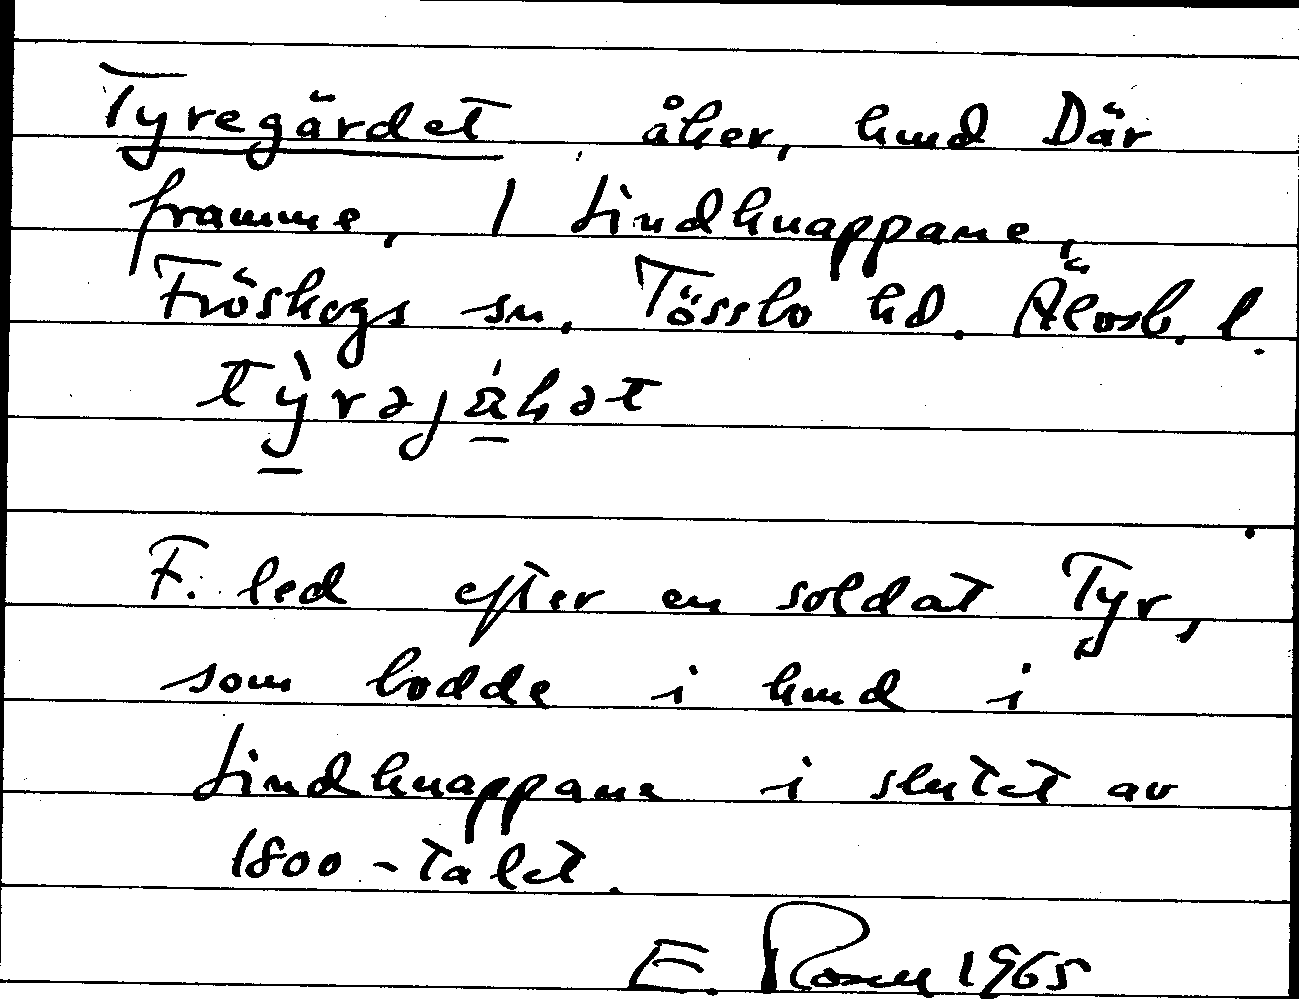 Tyregärdet, åker, hmd Där
framme, 1 Lindknappane,
Fröskogs sn, Tössbo hd. Älvsb. l.
F. led efter en soldat Tyr,
som bodde i hmd i
Lindknappane i slutet av
1800-talet.
E. Rosell 1965